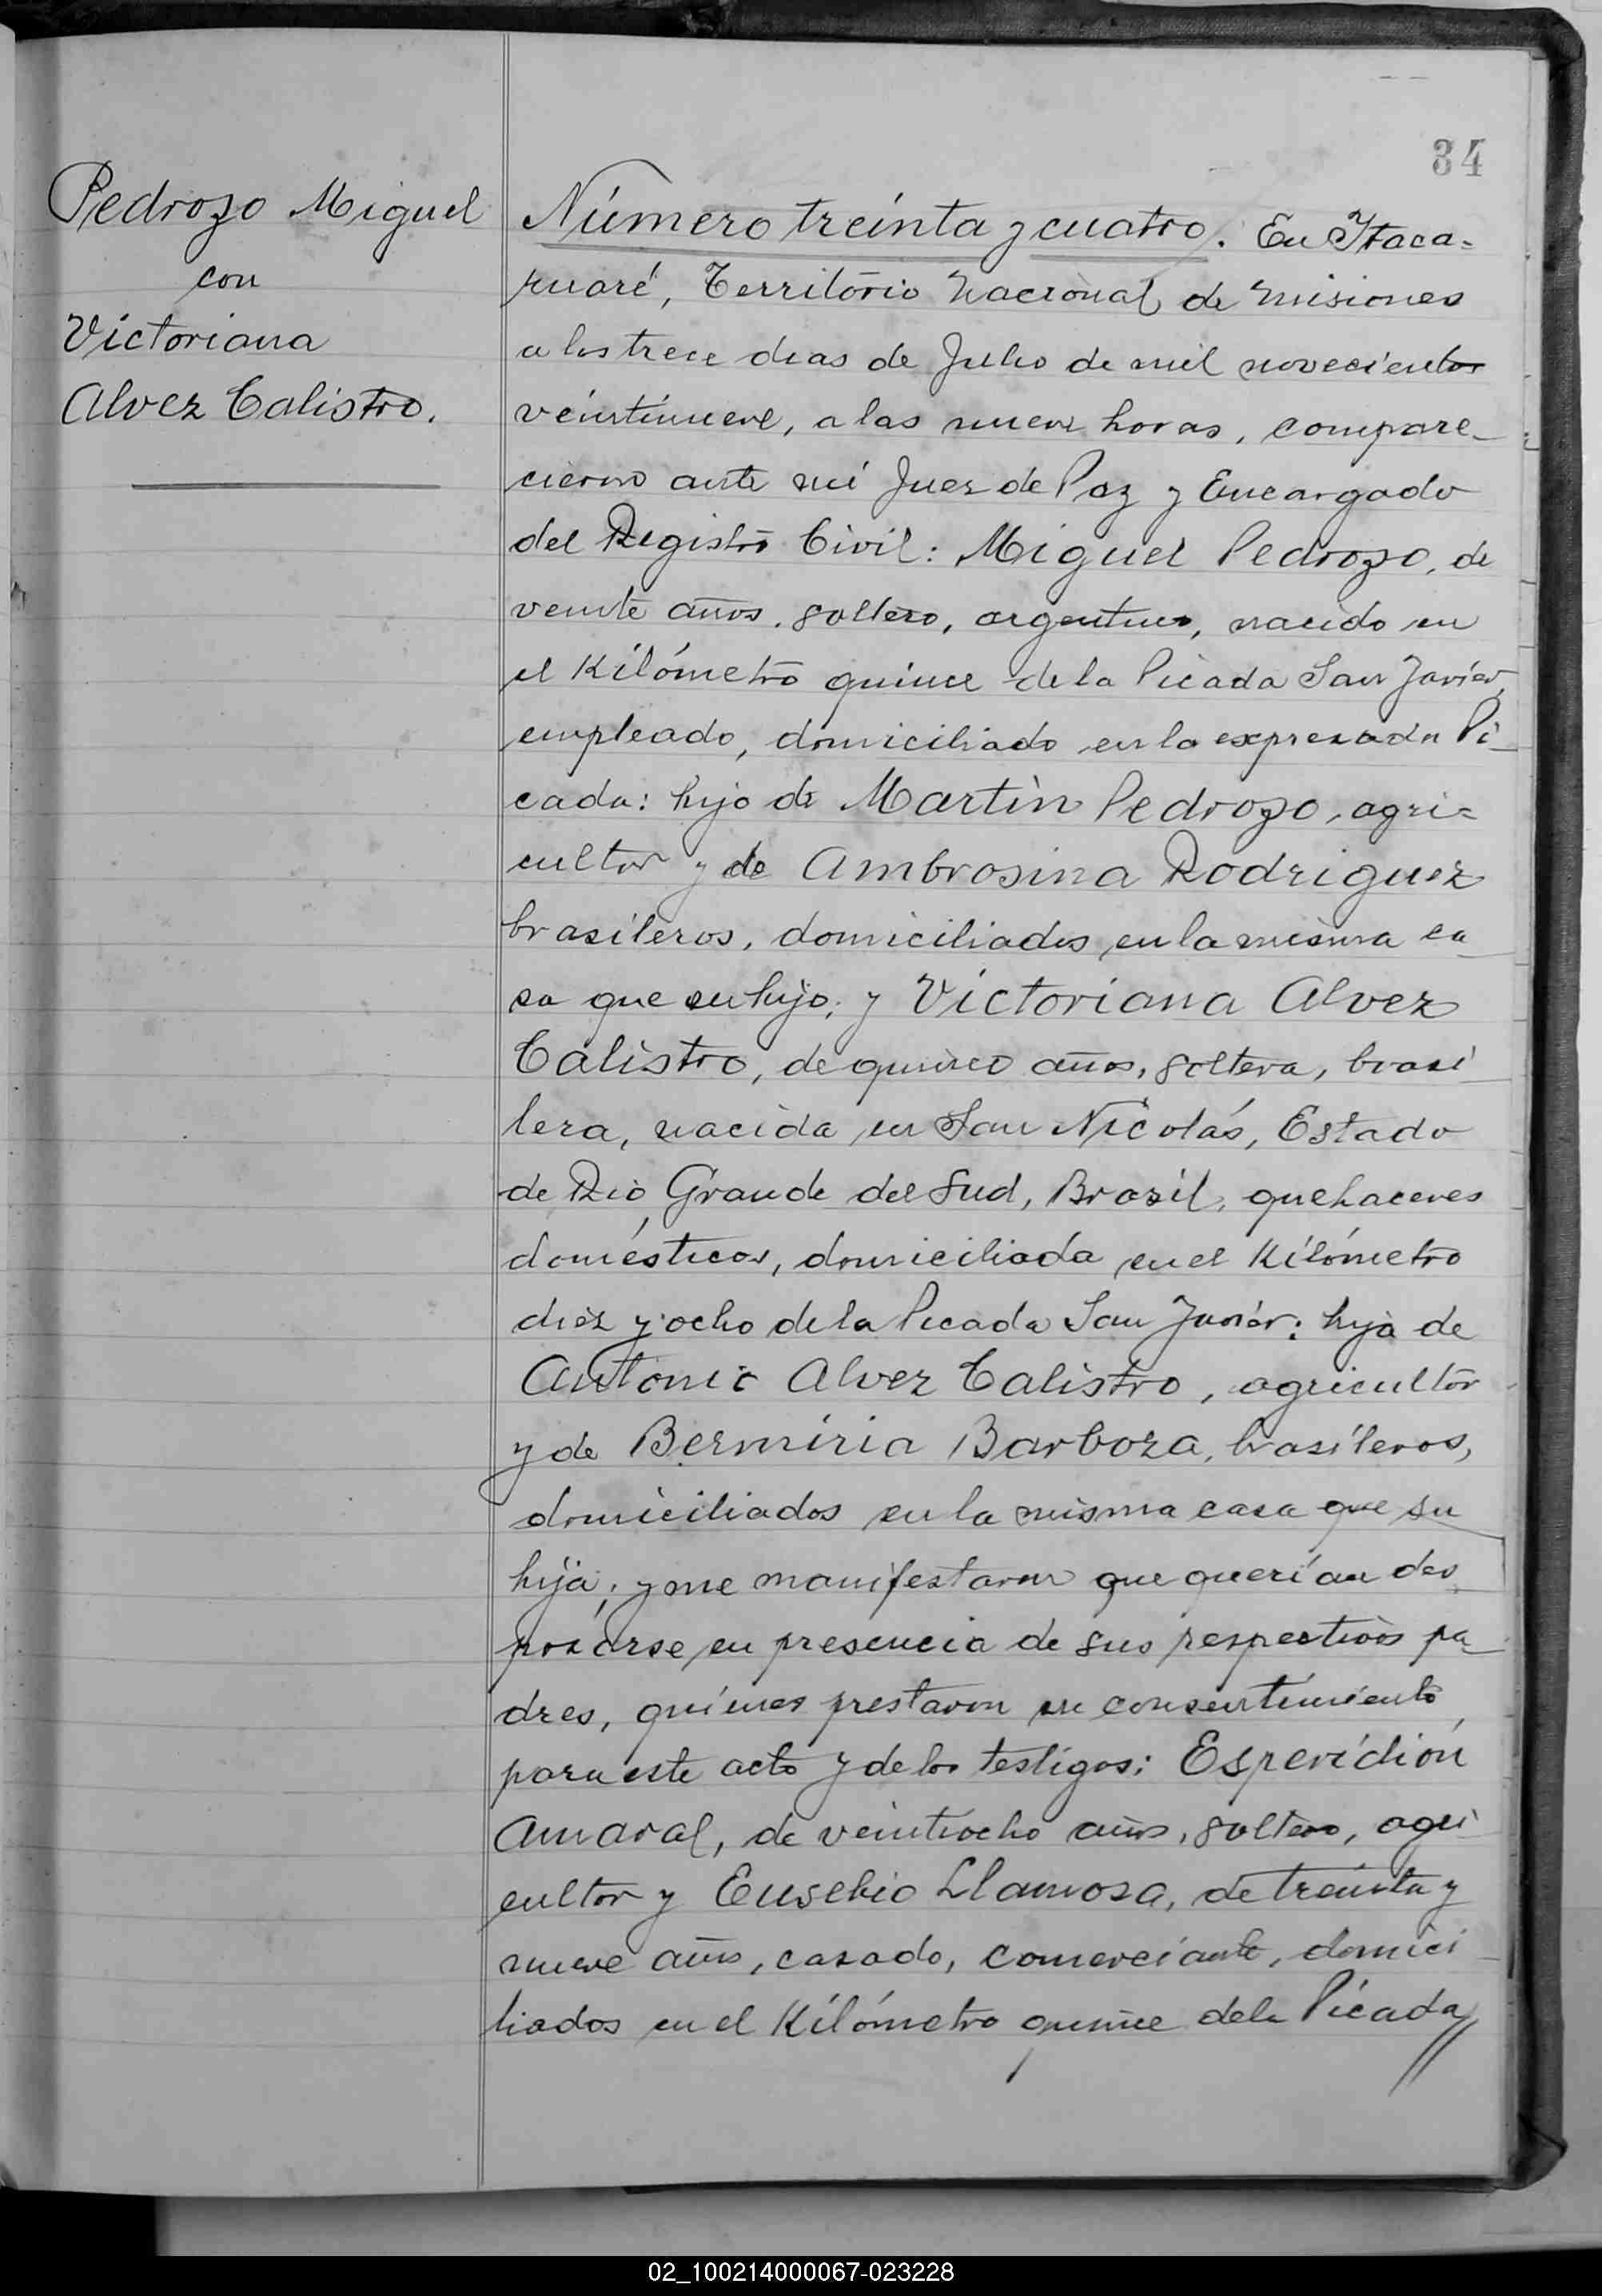 34
Pedrozo Miguel
con
Victoriana
Alvez Calistro.
Número treinta y cuatro. En Itaca=
ruaré, Territorio Nacional de Misiones
a los trece dias de Julio de mil novecientos
veintinueve, a las nueve horas, compare-
cieron ante mí Juez de Paz y Encargado
del Registro Civil: Miguel Pedrozo, de
veinte años, soltero, argentino, nacido en
el Kilómetro quince de la Picada San Javier,
empleado, domiciliado en la expresada Pi-
cada: hijo de Martin Pedrozo, agri=
cultor y de Ambrosina Rodriguez
brasileros, domiciliados en la misma ca-
sa que su hijo; y Victoriana Alvez
Calistro, de quince años, soltera, brasi-
lera, nacida en San Nicolás, Estado
de Rio Grande del Sud, Brasil, quehaceres
domésticos, domiciliada en el Kilómetro
diez y ocho de la Picada San Javier: hija de
Antonio Alvez Calistro, agricultor
y de Bermiria Barboza, brasileros,
domiciliados en la misma casa que su
hija; y me manifestaron que querían des-
posarse en presencia de sus respectivos pa-
dres, quienes prestaron su consentimiento
para este acto y de los testigos: Esperidión
Amaral, de veintiocho años, soltero, agri
cultor y Eusebio Llamosa, de treinta y
nueve años, casado, comerciante, domici-
liados en el Kilómetro quince de la Picada//
02_100214000067-023228